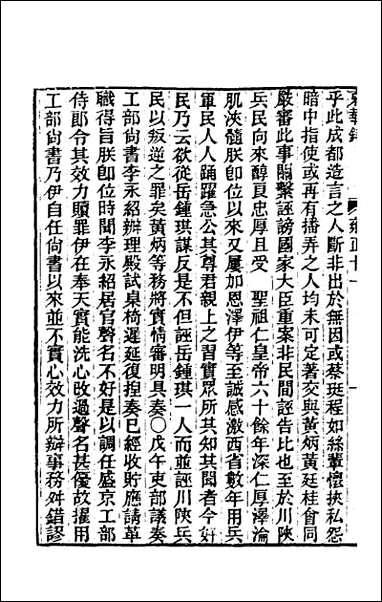 東華錄　雍正十一
乎此成都造言之人斷非出於無因或蔡珽程如絲輩懷挾私怨
暗中指使或再有播弄之人均未可定著交與黃炳黃廷桂會同
嚴審此事關繫誣謗國家大臣重案非民間誣告比也至於川陝
兵民向來醇良忠厚且受　聖祖仁皇帝六十餘年深仁厚澤淪
肌浹髓朕卽位以來又屢加恩澤伊等至誠感激西省數年用兵
軍民人人踊躍急公其尊君親上之習實眾所共知共聞者今好
民乃云欲從岳鍾琪謀反是不但誣岳鍾琪一人而並誣川陝兵
民以叛逆之罪矣黃炳等務將實情審明具奏〇戊午吏部議奏
工部尚書李永紹辦理殿試桌椅遲延復揑奏已經收貯應請革
職得旨朕卽位時聞李永紹居官聲名不好是以調任盛京工部
侍郞令其效力贖罪伊在奉天實能洗心改過聲名甚優故擢用
工部尚書乃伊自任尚書以來並不實心效力所辦事務舛錯謬